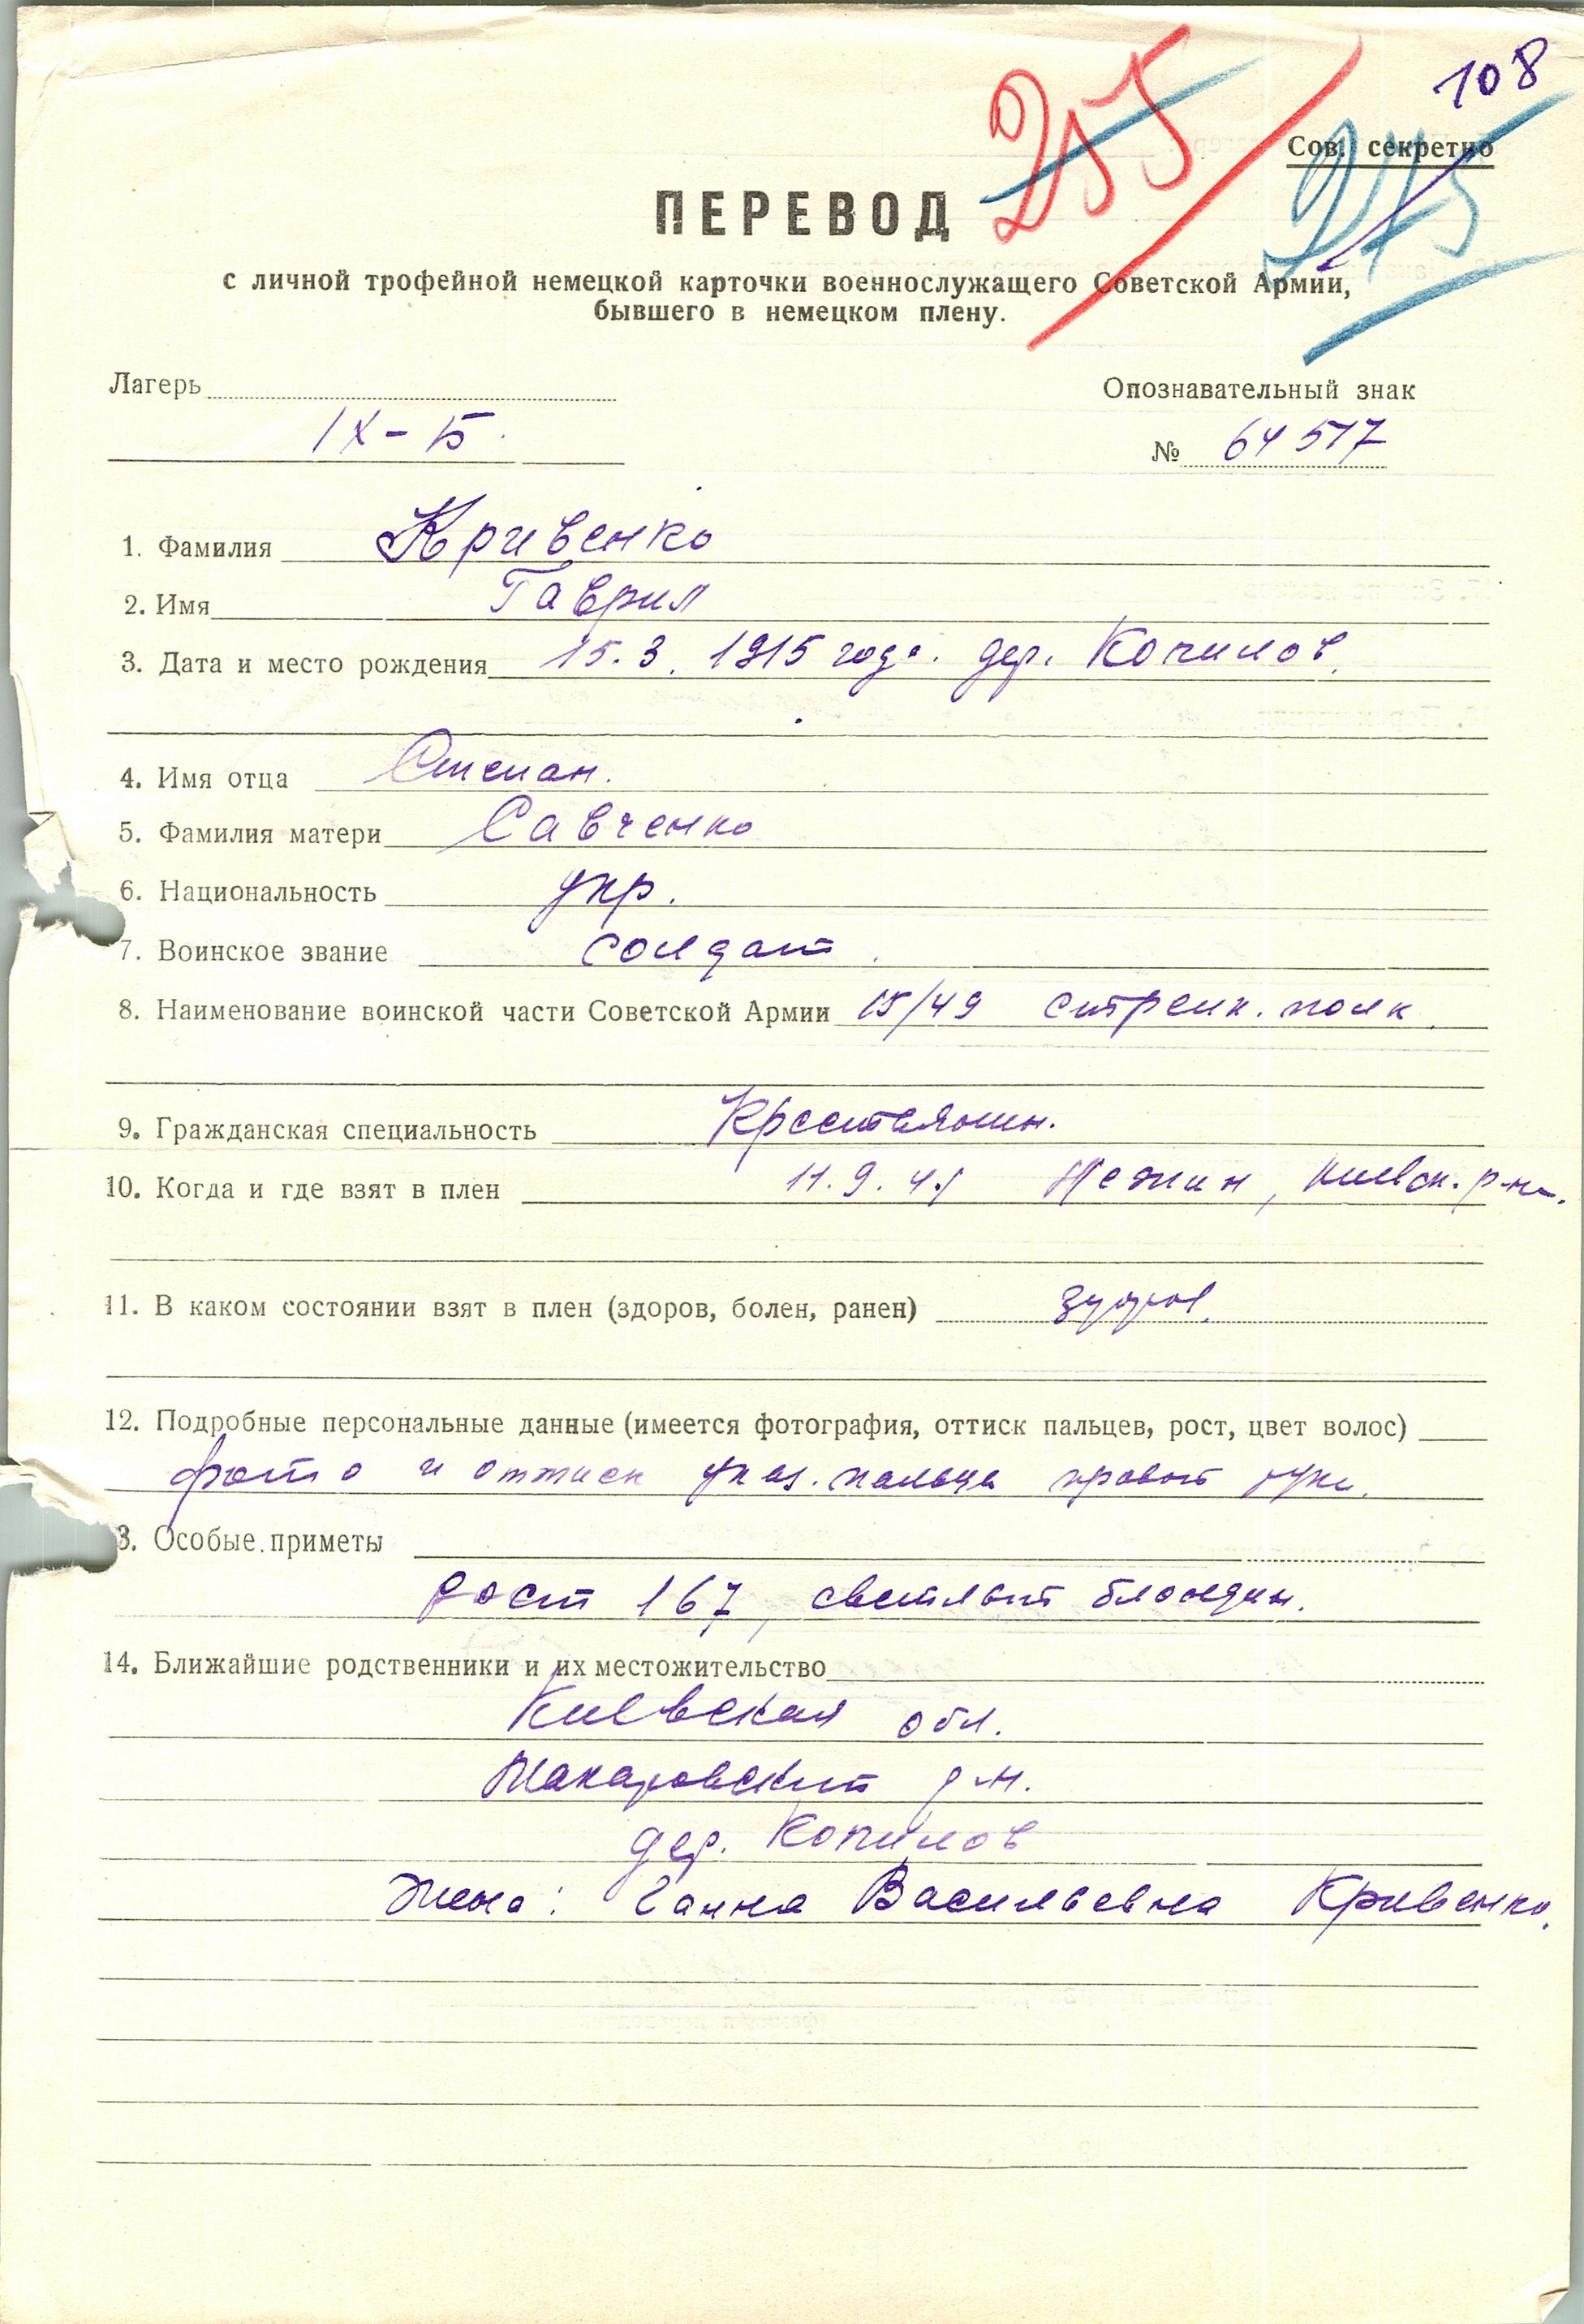 108
255
245
Сов. секретно
ПЕРЕВОД
с личной трофейной немецкой карточки военнослужащего Советской Армии,
бывшего в немецком плену.
Лагерь
Опознавательный знак
IX-Б
№ 64517
1. Фамилия Кривенко
2. Имя Гаврил
3. Дата и место рождения 15.3.1915 года. дер. Копилов.
4. Имя отца Степан.
5. Фамилия матери Савченко
6. Национальность укр.
7. Воинское звание солдат.
8. Наименование воинской части Советской Армии 15/49 стрелк. полк.
9. Гражданская специальность Крестьянин.
10. Когда и где взят в плен 11.9.41 Нежин, Киевск. р-на.
11. В каком состоянии взят в плен (здоров, болен, ранен) здоров.
12. Подробные персональные данные (имеется фотография, оттиск пальцев, рост, цвет волос)
фото и оттиск указ. пальца правой руки.
3. Особые приметы
рост 167, светлый блондин.
14. Ближайшие родственники и их местожительство
Киевская обл.
Макаровский р-н.
дер. Копилов
Жена: Ганна Васильевна Кривенко.